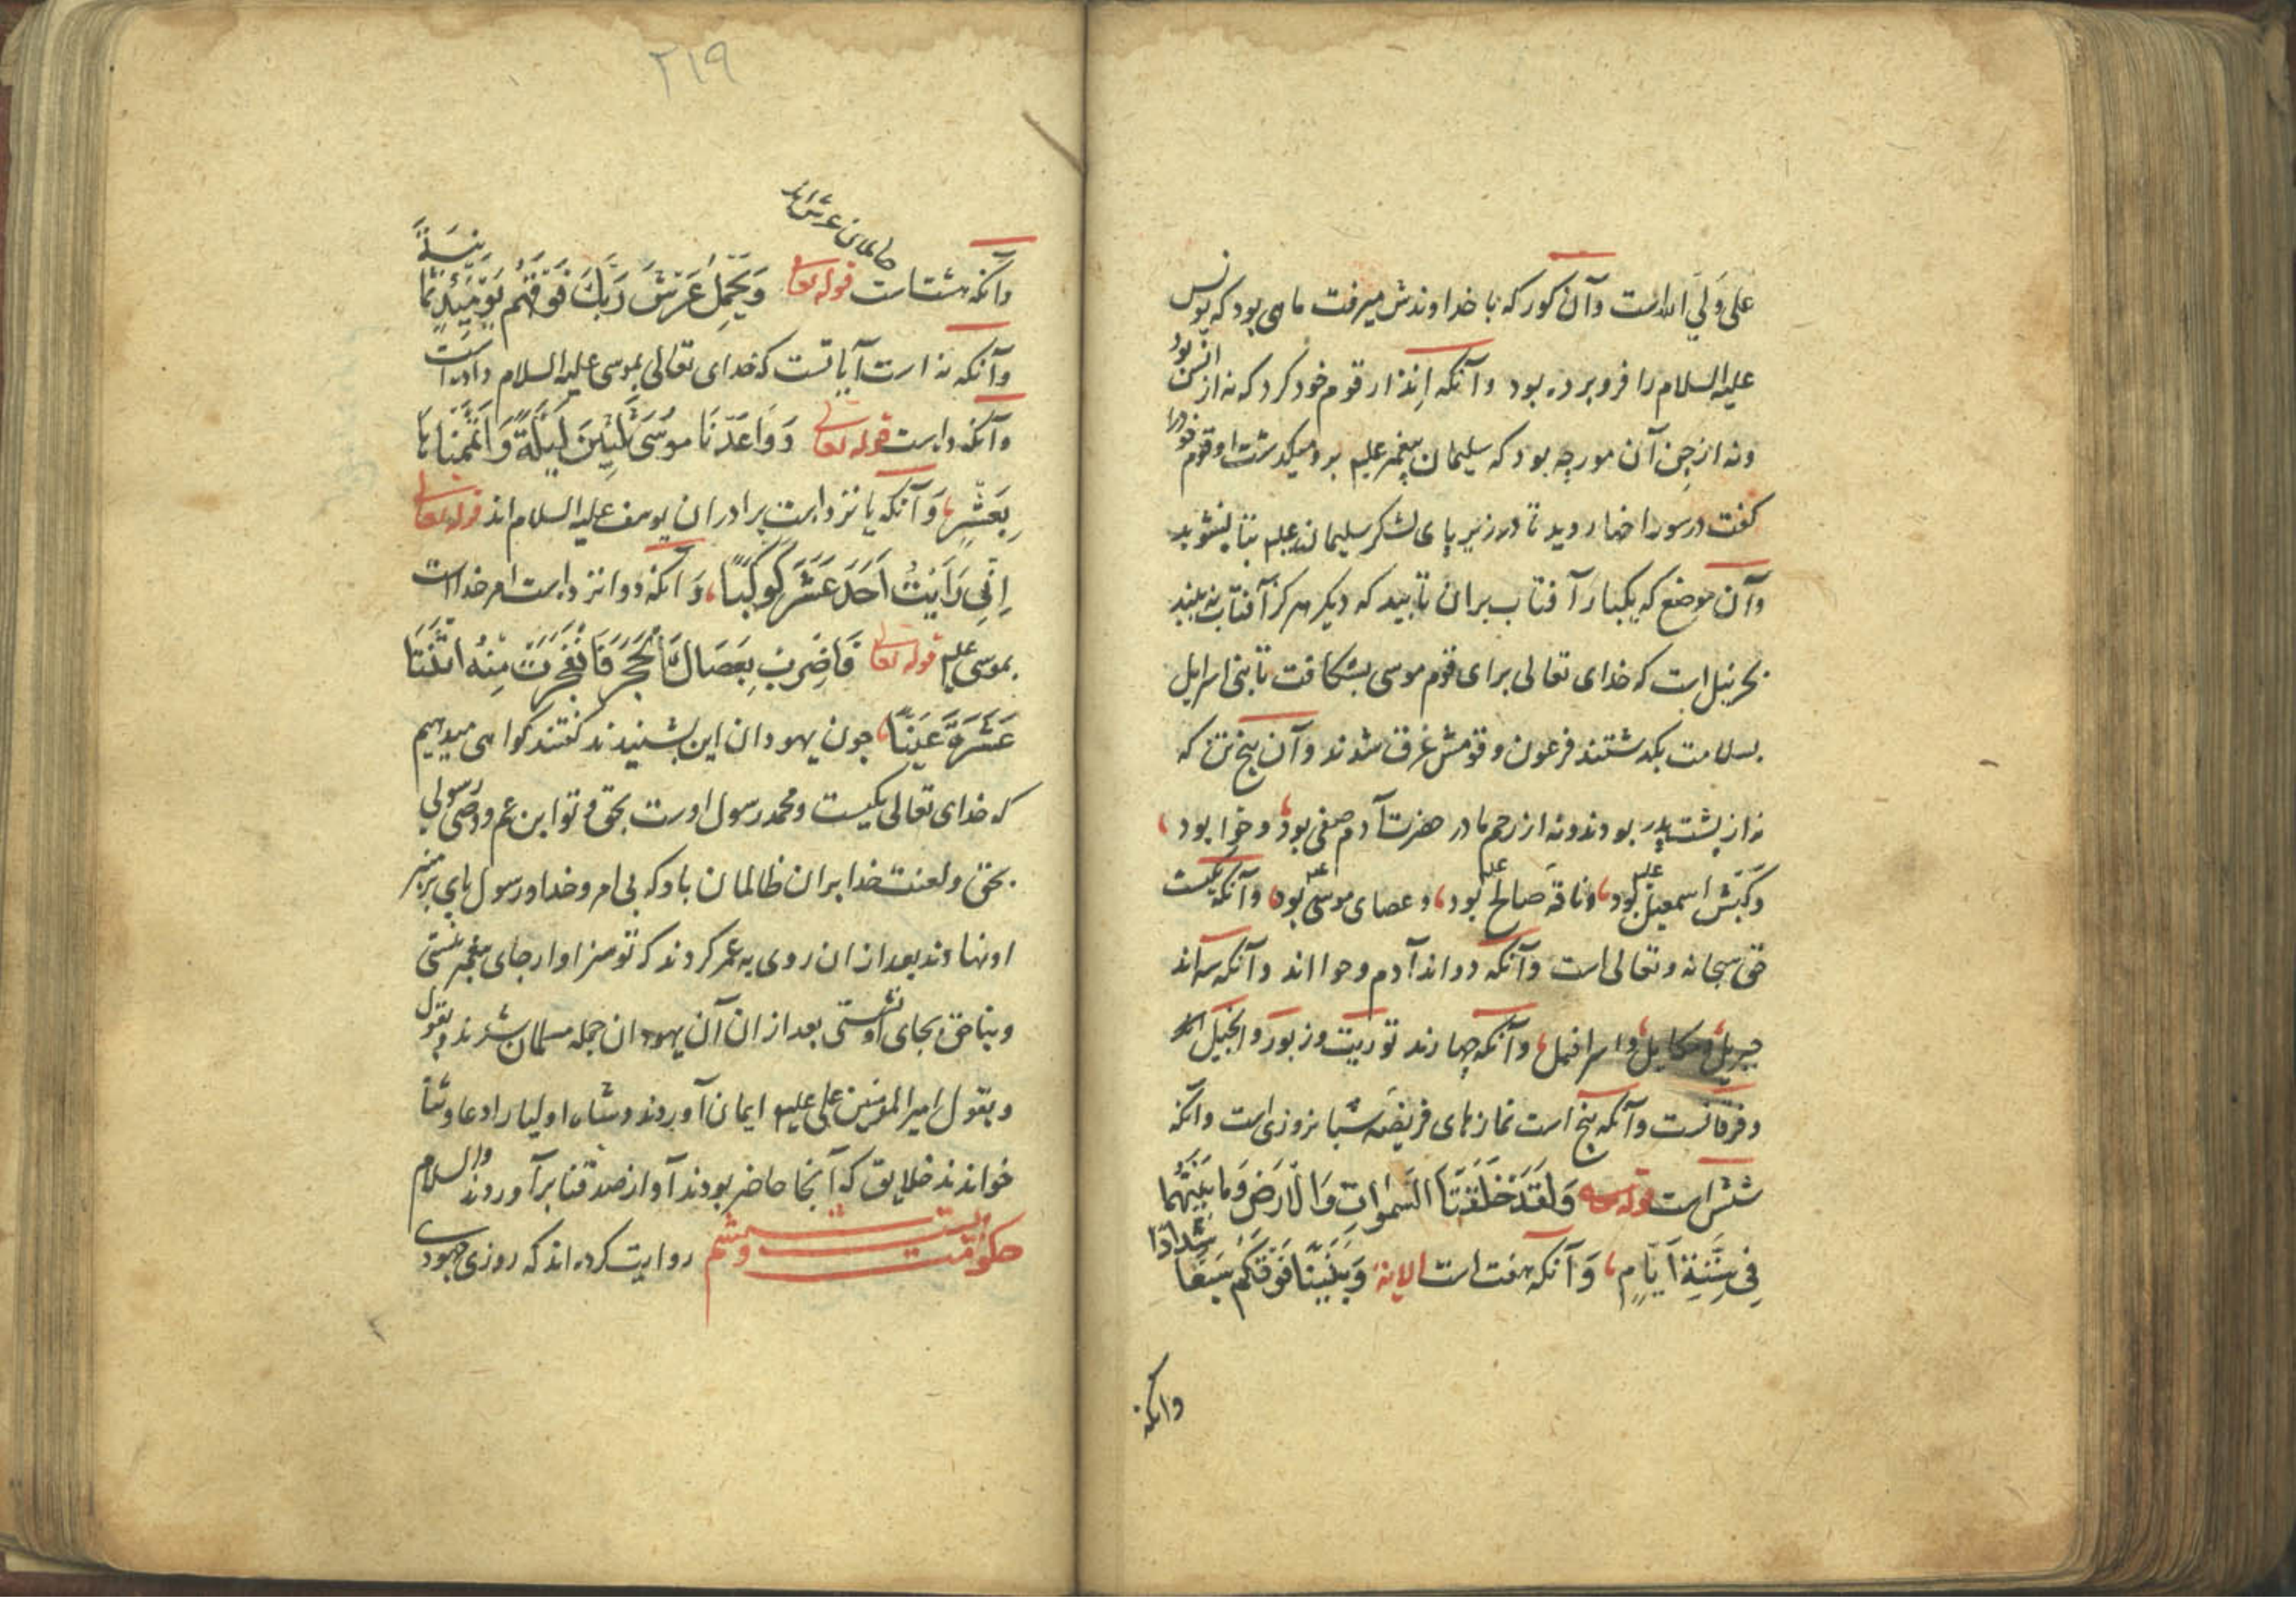 علی ولی الله است وآن کور که با خداوندش میرفت ماهی بود که یونس
علیه السلام را فرو برده بود وآنکه انذار قوم خود کرد که نه از انس بود
ونه از جن آن مورچه بود که سلیمان پیغمبر علیه برو میگذشت او قوم خود را
کفت در سوراخها روید تا در زیر پای لشکر سلیمان علیه
وآن موضع که یکبار آفتاب بران تابید که دیکر هرکز آفتاب نه بیند
بحر نیل است که خدای تعالی برای قوم موسی بشکافت تا بنی اسرایل
بسلامت بکذشتند فرعون و قومش غرق شدند وآن پنج تن که
نه از پشت پدر بودند ونه از رحم مادر حضرت آدم صفی بود، وحوا بود،
وکبش اسمعیل علیه بود، وناقة صالح علیه بود، وعصای موسی علیه بود، وآنکه یکیست
حق سبحانه وتعالی است وآنکه دواند آدم وحوا اند وآنکه سه اند
جبریل، ومیکایل، واسرافیل، وآنکه چهارند توریت وزبور وانجیل
وفرقانست وآنکه پنج است نمازهای فریضه شبانروزی است وآنکه
شش است قوله وَلَقَدْ خَلَقْنَا السَّمٰوَاتِ وَالْاَرْضَ وَمَا بَيْنَهُمَا
فِي سِتَّةِ اَيَّامٍ، وَآنکه هفت است الایة وَبَنَيْنَا فَوْقَكُمْ سَبْعًا شِدَادًا
وانکه
۲۱۹
حاملان عرش اند
وآنکه هشت است قوله تعالی وَيَحْمِلُ عَرْشَ رَبِّكَ فَوْقَهُمْ يَوْمَئِذٍ ثَمَانِيَةٌ
وآنکه نه است آیاتست که خدای تعالی بموسی علیه السلام داده است
وآنکه ده است قوله تعالی وَوَاعَدْنَا مُوسَى ثَلٰثِينَ لَيْلَةً وَاَتْمَمْنَاهَا
بِعَشْرٍ، وَآنکه یانزده است برادران یوسف علیه السلام اند قوله تعالی
اِنِّي رَاَيْتُ اَحَدَ عَشَرَ كَوْكَبًا، وَآنکه دوانزده است امر خدا است
بموسی علیه قوله تعالی فَاضْرِبْ بِعَصَاكَ الْحَجَرَ فَانْفَجَرَتْ مِنْهُ اثْنَتَا
عَشْرَةَ عَيْنًا، چون یهودان این بشنیدند کفتند کواهی میدهیم
که خدای تعالی یکیست ومحمد رسول اوست بحق وتو ابن عم ووصی رسولی
بحق ولعنت خدا بران ظالمان باد که بی امر وخدا ورسول پای بر منبر
او نهادند بعد از ان روی به عمر کردند که تو سزاوار جای پیغمبر نیستی
وبناحق بجای او نشستی بعد از ان آن یهودان جمله مسلمان شدند و بقول
وبقول امیر المؤمنین علی علیه ایمان آوردند وشاه اولیا را دعا وثنا
خواندند خلایق که آنجا حاضر بودند آواز صدقنا برآوردند والسلام
حکومت بیست وششم روایت کرده اند که روزی جهودی